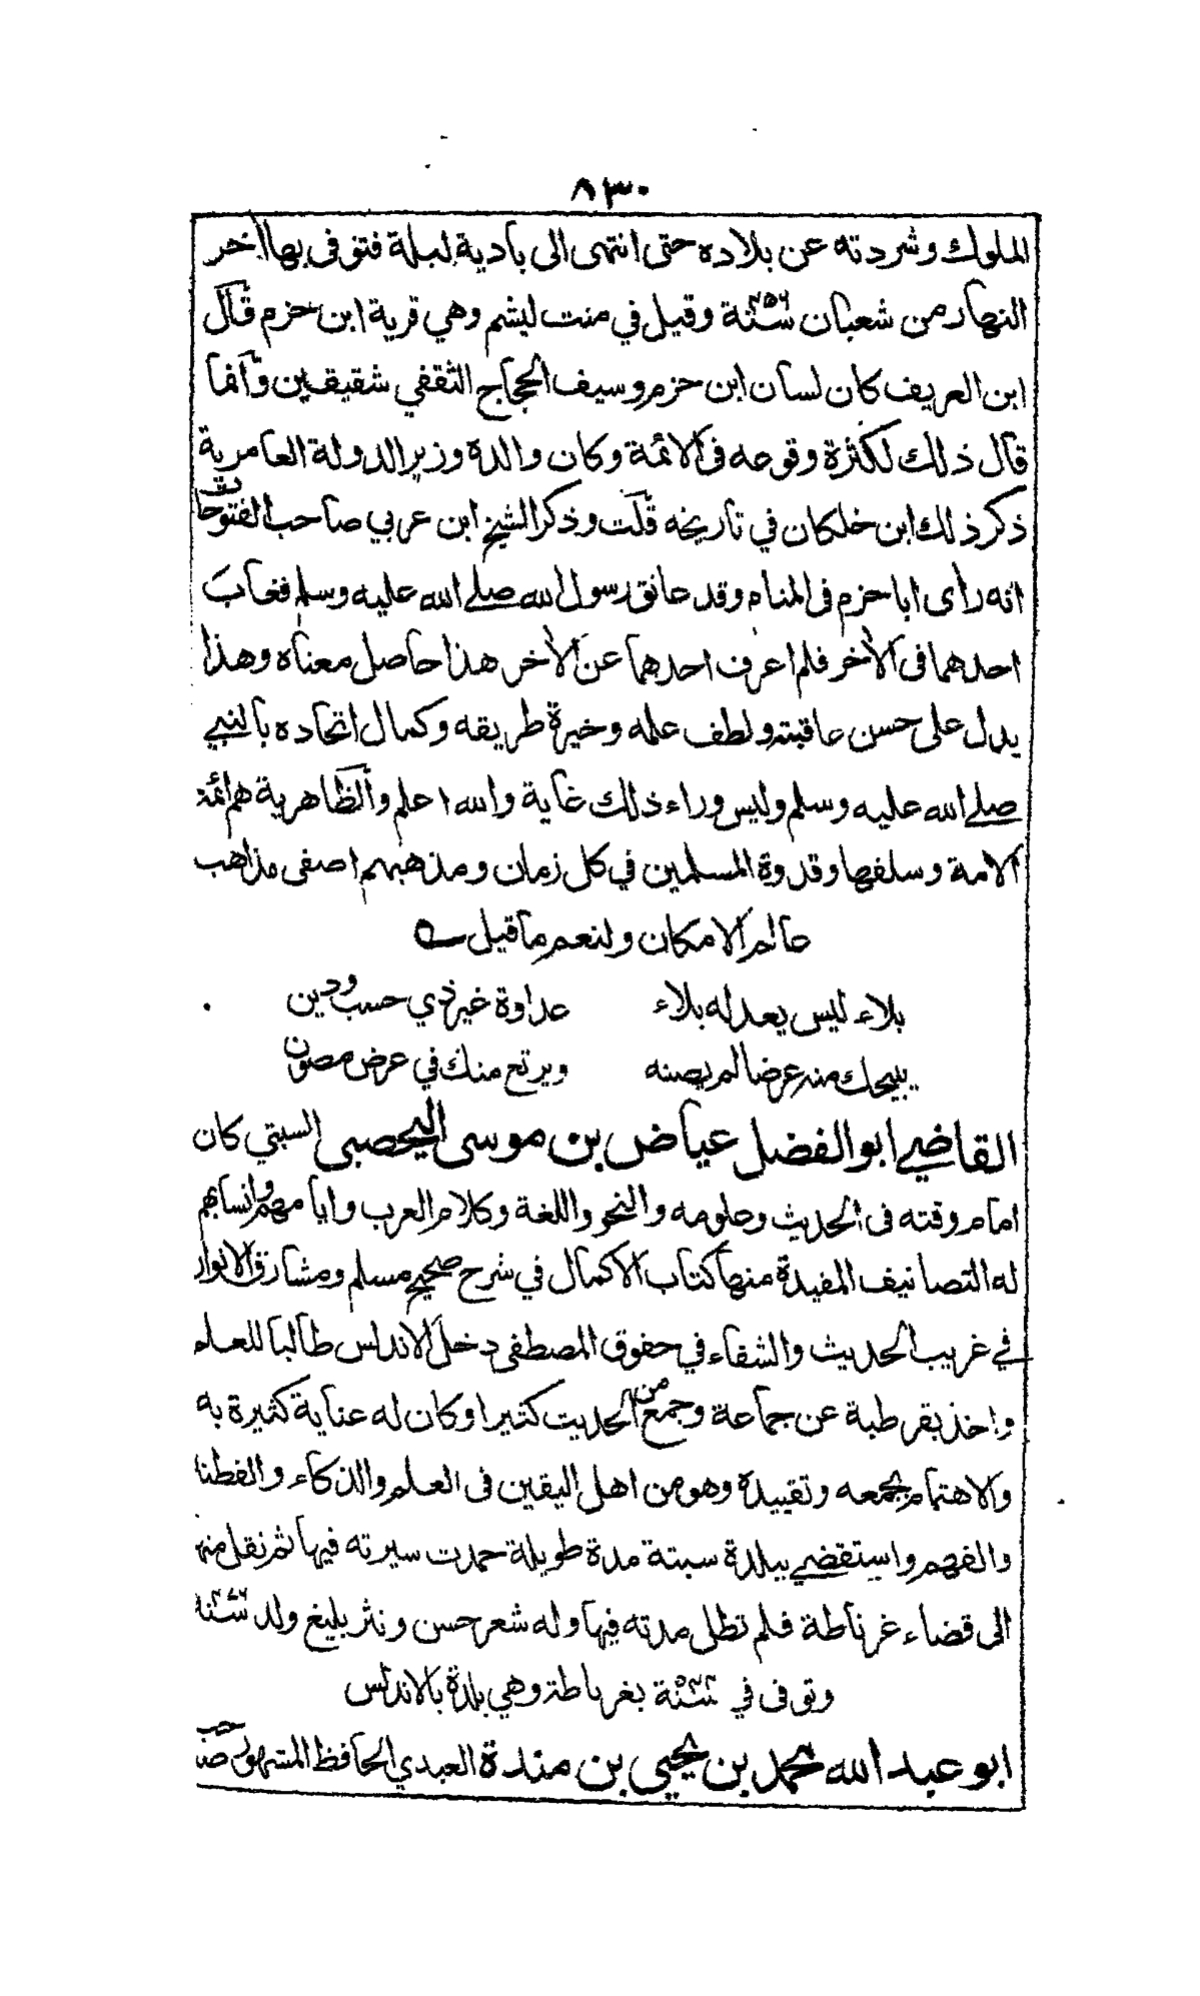 ٨٣٠
الملوك وشردته عن بلاده حتى انتهى الى بادية لبلة فتوفى بها اخر
النهار من شعبان سنة ٤٥٦ وقيل في منت ليشم وهي قرية ابن حزم قال
ابن العريف كان لسان ابن حزم وسيف الحجاج الثقفي شقيقين وانما
قال ذلك لكثرة وقوعه فى الائمة وكان والده وزير الدولة العامرية
ذكر ذلك ابن خلكان في تاريخه قلت وذكر الشيخ ابن عربي صاحب الفتوحات
انه راى ابا حزم فى المنام وقد عانق رسول الله صلے الله عليه وسلم فغاب
احدهما فى الاخر فلم اعرف احدهما عن الاخر هذا حاصل معناه وهذا
يدل على حسن عاقبته ولطف علمه وخيرة طريقه وكمال اتحاده بالنبي
صلے الله عليه وسلم وليس وراء ذلك غاية والله اعلم والظاهرية هم ائمة
الامة وسلفها وقدوة المسلمين في كل زمان ومذهبهم اصفى مذاهب
عالم الامكان ولنعم ما قيل
بلاء ليس يعدله بلاء عداوة غير ذي حسب ودين
يبيحك منه عرضا لم يصنه ويرتع منك في عرض مصون
القاضي ابو الفضل عياض بن موسى اليحصبى السبتي كان
امام وقته فى الحديث وعلومه والنحو واللغة وكلام العرب وايامهم وانسابهم
له التصانيف المفيدة منها كتاب الاكمال في شرح صحيح مسلم ومشارق الانوار
في غريب الحديث والشفاء في حقوق المصطفى دخل الاندلس طالبا للعلم
واخذ بقرطبة عن جماعة وجمع من الحديث كثيرا وكان له عناية كثيرة به
والاهتمام بجمعه وتقييده وهو من اهل اليقين فى العلم والذكاء والفطنة
والفهم واستقضي ببلدة سبتة مدة طويلة حمدت سيرته فيها ثم نقل منها
الى قضاء غرناطة فلم تطل مدته فيها وله شعر حسن ونثر بليغ ولد سنة ٤٧٦
وتوفى في سنة ٥٤٤ بغرناطة وهي بلدة بالاندلس
ابو عبد الله محمد بن يحيى بن مندة العبدي الحافظ المشهور صاحب